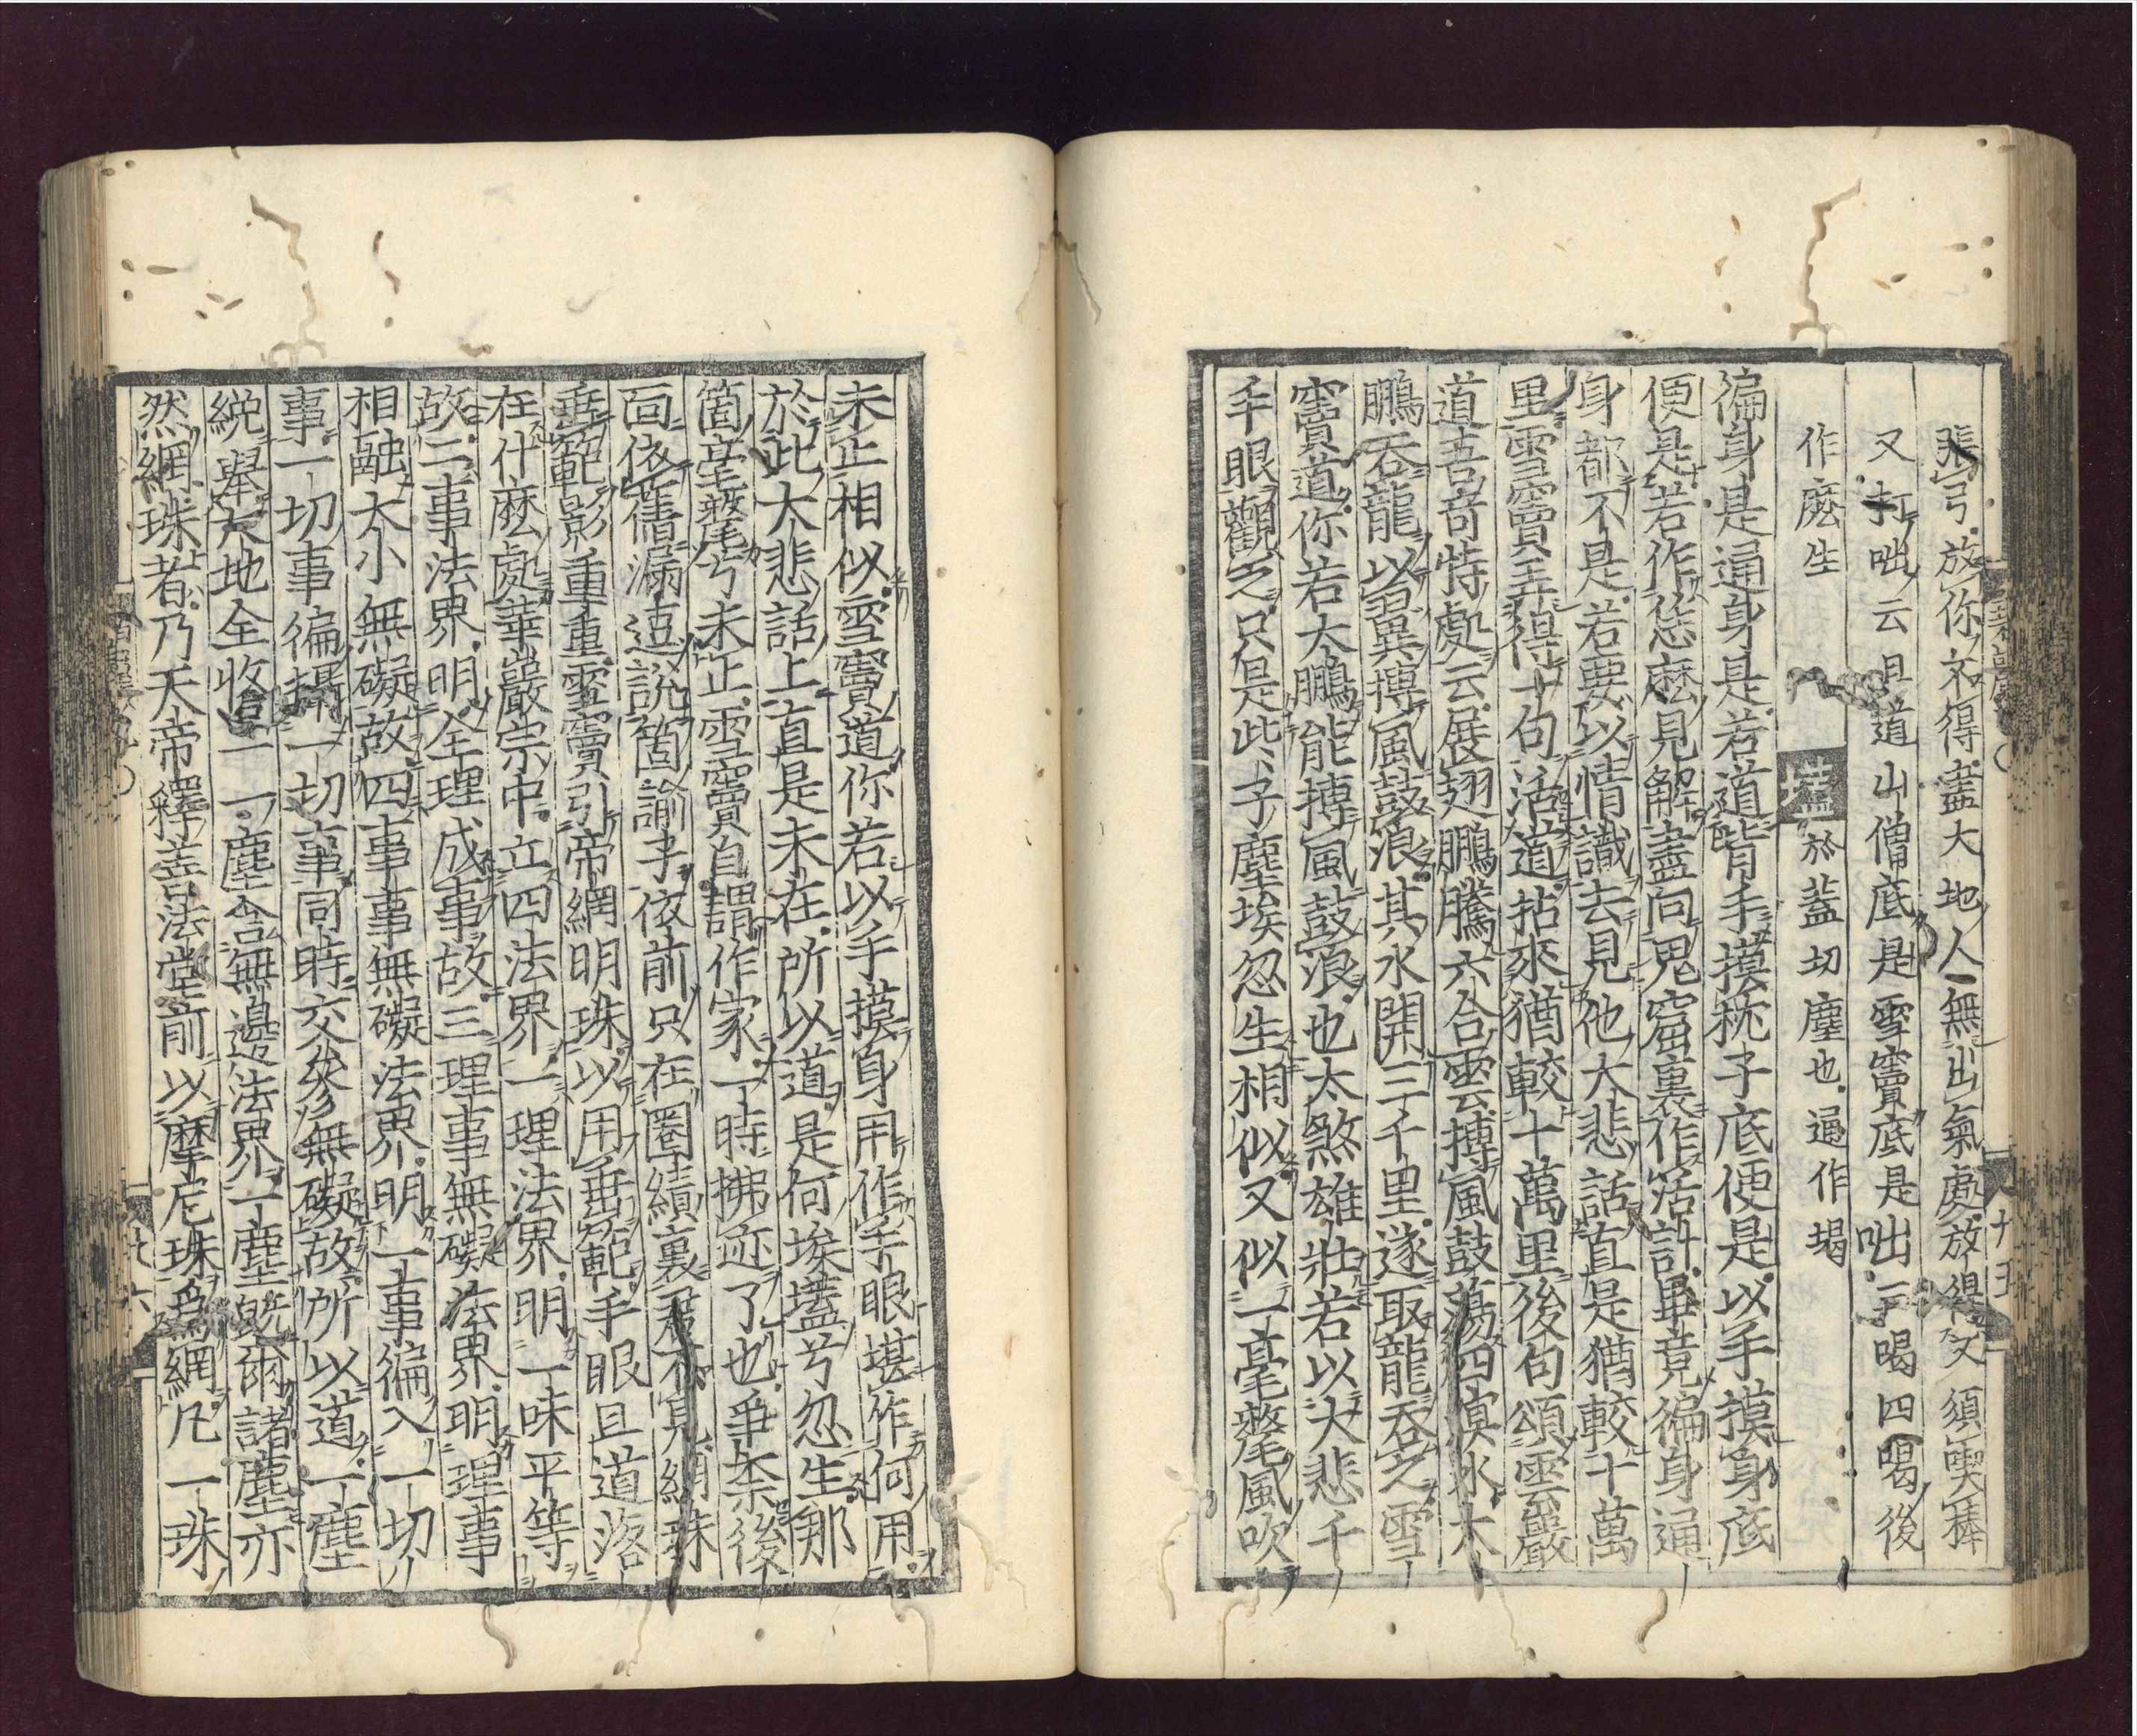 張弓放你不得盡大地人無出氣處放得又須喫棒
又打咄云且道山僧底是雪竇底是咄三喝四喝後
作麽生
壒
於蓋切塵也通作堨
徧身是通身是若道背手摸枕子底便是以手摸身底
便是若作恁麽見解盡向鬼窟裏作活計畢竟徧身通
身都不是若要以情識去見他大悲話直是猶較十萬
里雪竇弄得十句活道拈來猶較十萬里後句頌雲巖
道吾奇特處云展翅鵬騰六合雲搏風鼓蕩四溟水大
鵬吞龍以翼搏風鼓浪其水開三千里遂取龍吞之雪
竇道你若大鵬能搏風鼓浪也太煞雄壯若以大悲千
手眼觀之只是些子塵埃忽生相似又似一毫氂風吹
未止相似雪竇道你若以手摸身用作手眼堪作何用
於此大悲話上直是未在所以道是何埃壒兮忽生那
箇毫氂兮未止雪竇自謂作家一時拂迹了也爭奈後
面依舊漏逗說箇諭子依前只在圈繢裏君不見網珠
垂範影重重雪竇引帝網明珠以用垂範手眼且道落
在什麽處華嚴宗中立四法界一理法界明一味平等
故二事法界明全理成事故三理事無礙法界明理事
相融大小無礙故四事事無礙法界明一事徧入一切
事一切事徧攝一切事同時交參無礙故所以道一塵
纔舉大地全收一一塵含無邊法界一塵既爾諸塵亦
然網珠者乃天帝釋善法堂前以摩尼珠爲網凡一珠